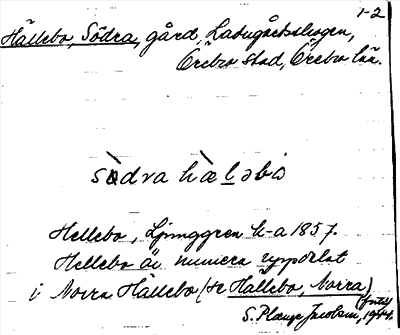 1-2
Hällebo, Södra, gård, Ladugårdsskogen,
Örebro stad, Örebro län.
södra hæləbo
Hellebo, Ljunggren k-a 1857.
Hellebo är numera uppdelat
i Norra Hällebo (se Hällebo, Norra)
S. Plange Jacobson, 1944.